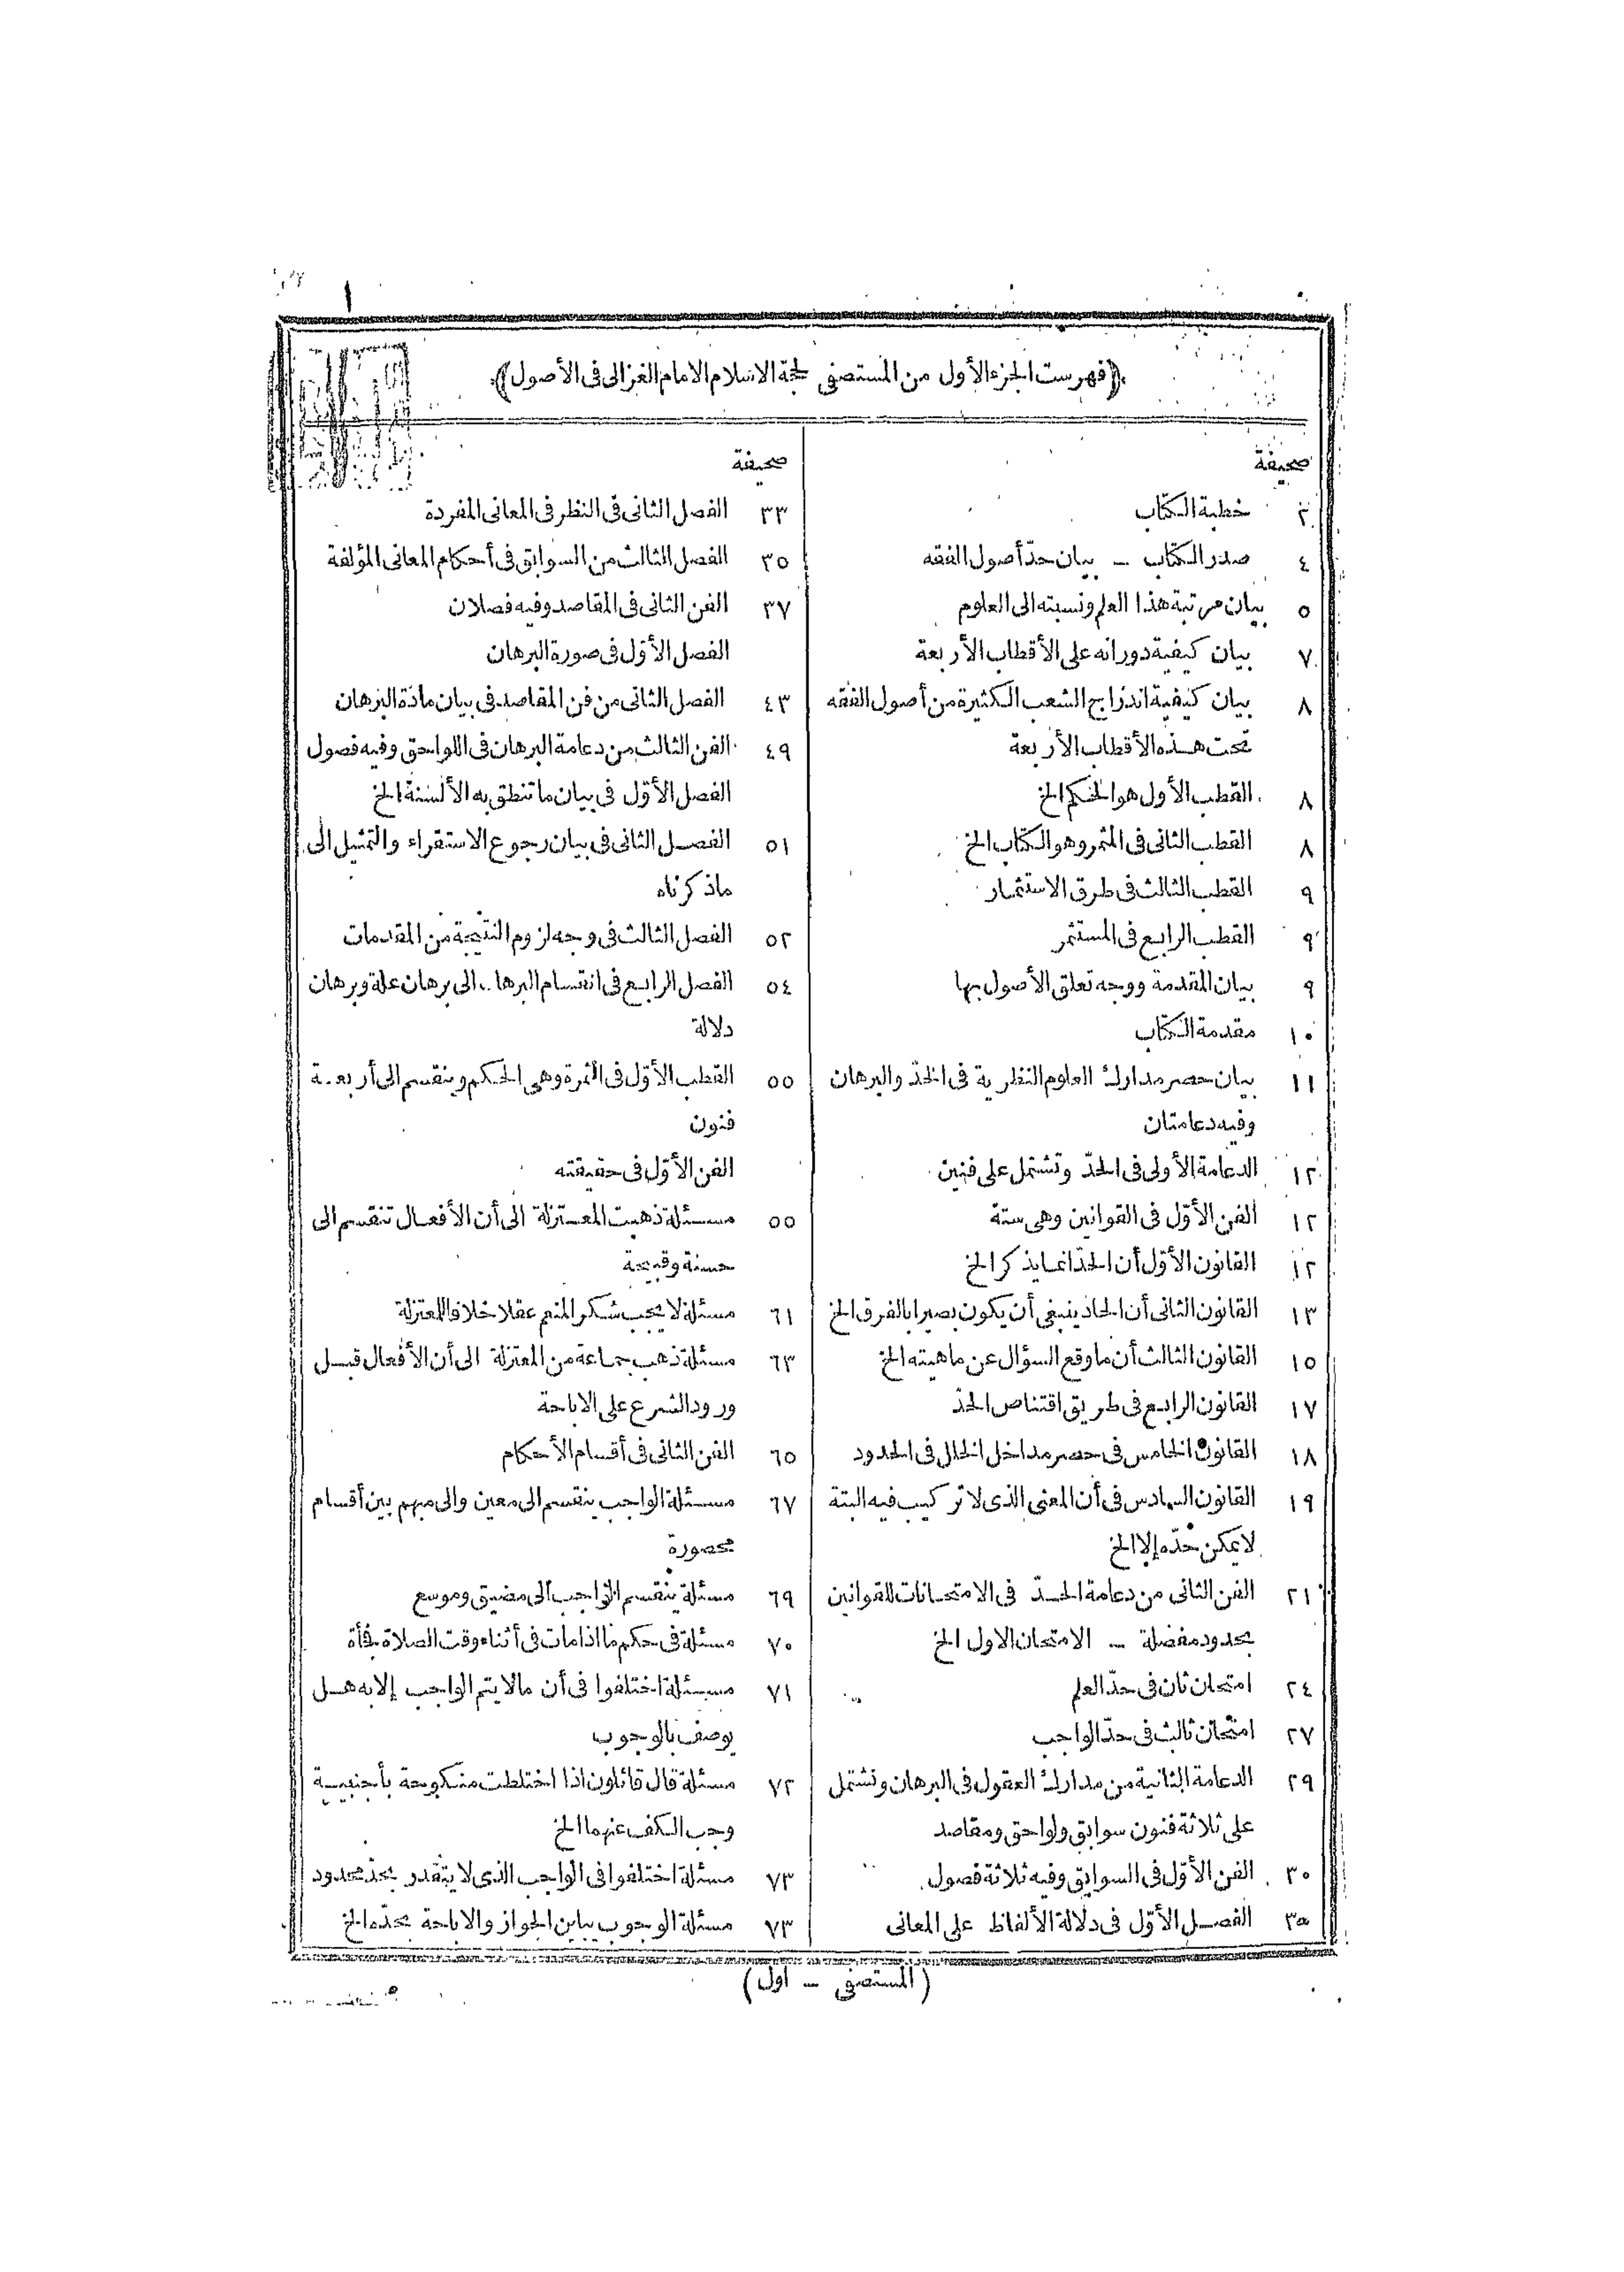 (فهرست الجزء الأول من المستصفى لحجة الاسلام الامام الغزالى فى الأصول)
صحيفة
٢ خطبة الكتاب
٤ صدر الكتاب – بيان حدّ أصول الفقه
٥ بيان مرتبة هذا العلم ونسبته الى العلوم
٧ بيان كيفية دورانه على الأقطاب الأربعة
٨ بيان كيفية اندراج الشعب الكثيرة من أصول الفقه
تحت هذه الأقطاب الأربعة
٨ القطب الأول هو الحكم الخ
٨ القطب الثانى فى المثمر وهو الكتاب الخ
٩ القطب الثالث فى طرق الاستثمار
٩ القطب الرابع فى المستثمر
٩ بيان المقدمة ووجه تعلق الأصول بها
١٠ مقدمة الكتاب
١١ بيان حصر مدارك العلوم النظرية فى الحدّ والبرهان
وفيه دعامتان
١٢ الدعامة الأولى فى الحدّ وتشتمل على فنين
١٢ الفن الأوّل فى القوانين وهى ستة
١٢ القانون الأوّل أن الحدّ انما يذكر الخ
١٣ القانون الثانى أن الحادّ ينبغى أن يكون بصيرا بالفرق الخ
١٥ القانون الثالث أن ما وقع السؤال عن ماهيته الخ
١٧ القانون الرابع فى طريق اقتناص الحدّ
١٨ القانون الخامس فى حصر مداخل الخلل فى الحدود
١٩ القانون السادس فى أن المعنى الذى لا تركيب فيه البتة
لا يمكن حدّه إلا الخ
٢١ الفن الثانى من دعامة الحدّ فى الامتحانات للقوانين
بحدود مفصلة – الامتحان الاول الخ
٢٤ امتحان ثان فى حدّ العلم
٢٧ امتحان ثالث فى حدّ الواجب
٢٩ الدعامة الثانية من مدارك العقول فى البرهان وتشتمل
على ثلاثة فنون سوابق ولواحق ومقاصد
٣٠ الفن الأوّل فى السوابق وفيه ثلاثة فصول
٣٠ الفصل الأوّل فى دلالة الألفاظ على المعانى
صحيفة
٣٣ الفصل الثانى فى النظر فى المعانى المفردة
٣٥ الفصل الثالث من السوابق فى أحكام المعانى المؤلفة
٣٧ الفن الثانى فى المقاصد وفيه فصلان
الفصل الأوّل فى صورة البرهان
٤٣ الفصل الثانى من فن المقاصد فى بيان مادّة البرهان
٤٩ الفن الثالث من دعامة البرهان فى اللواحق وفيه فصول
الفصل الأوّل فى بيان ما تنطق به الألسنة الخ
٥١ الفصل الثانى فى بيان رجوع الاستقراء والتمثيل الى
ما ذكرناه
٥٢ الفصل الثالث فى وجه لزوم النتيجة من المقدمات
٥٤ الفصل الرابع فى انقسام البرهان الى برهان علة وبرهان
دلالة
٥٥ القطب الأوّل فى الثمرة وهى الحكم وينقسم الى أربعة
فنون
الفن الأوّل فى حقيقته
٥٥ مسئلة ذهبت المعتزلة الى أن الأفعال تنقسم الى
حسنة وقبيحة
٦١ مسئلة لا يجب شكر المنعم عقلا خلافا للمعتزلة
٦٣ مسئلة ذهب جماعة من المعتزلة الى أن الأفعال قبل
ورود الشرع على الاباحة
٦٥ الفن الثانى فى أقسام الأحكام
٦٧ مسئلة الواجب ينقسم الى معين والى مبهم بين أقسام
محصورة
٦٩ مسئلة ينقسم الواجب الى مضيق وموسع
٧٠ مسئلة فى حكم ما اذا مات فى أثناء وقت الصلاة فجأة
٧١ مسئلة اختلفوا فى أن ما لا يتم الواجب إلا به هل
يوصف بالوجوب
٧٢ مسئلة قال قائلون اذا اختلطت منكوحة بأجنبية
وجب الكف عنهما الخ
٧٣ مسئلة اختلفوا فى الواجب الذى لا يتقدر بحدّ محدود
٧٣ مسئلة الوجوب يباين الجواز والاباحة بحدّه الخ
(المستصفى – اول)